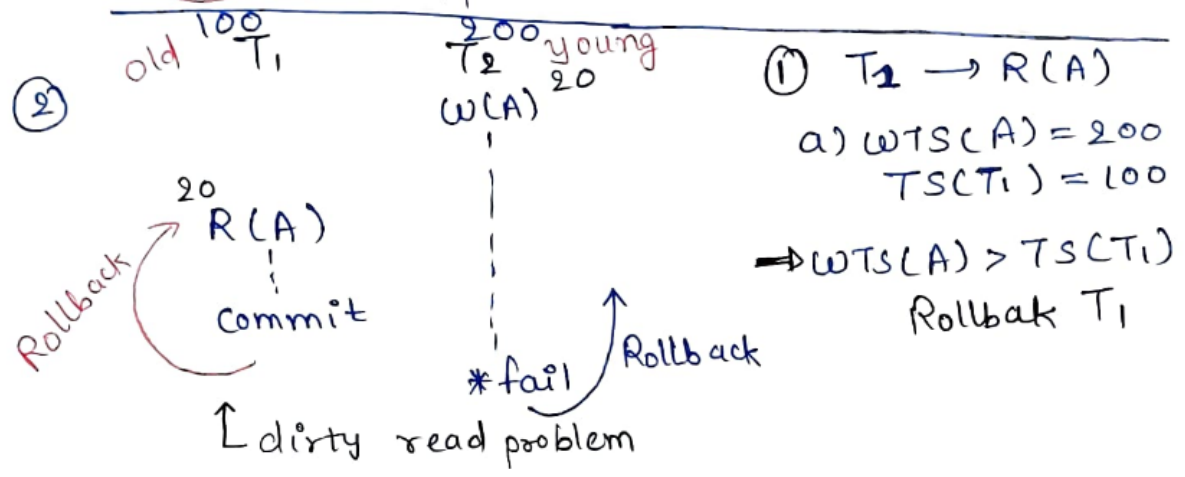 old 100 T₁ 200 T₂ young
② W(A) 20
20
R(A)
Rollback
commit
* fail Rollback
dirty read problem
① T₁ → R(A)
a) WTS(A) = 200
TS(T₁) = 100
⇒ WTS(A) > TS(T₁)
Rollbak T₁